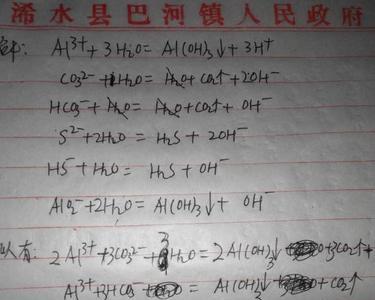 浠水县巴河镇人民政府
Al³⁺+3H₂O=Al(OH)₃↓+3H⁺
CO₃²⁻+H₂O=H₂O+CO₂↑+2OH⁻
HCO₃⁻+H₂O=H₂O+CO₂↑+OH⁻
S²⁻+2H₂O=H₂S+2OH⁻
HS⁻+H₂O=H₂S+OH⁻
AlO₂⁻+2H₂O=Al(OH)₃↓+OH⁻
有: 2Al³⁺+3CO₃²⁻+3H₂O=2Al(OH)₃↓+3CO₂↑
Al³⁺+3HCO₃⁻=Al(OH)₃↓+CO₂↑